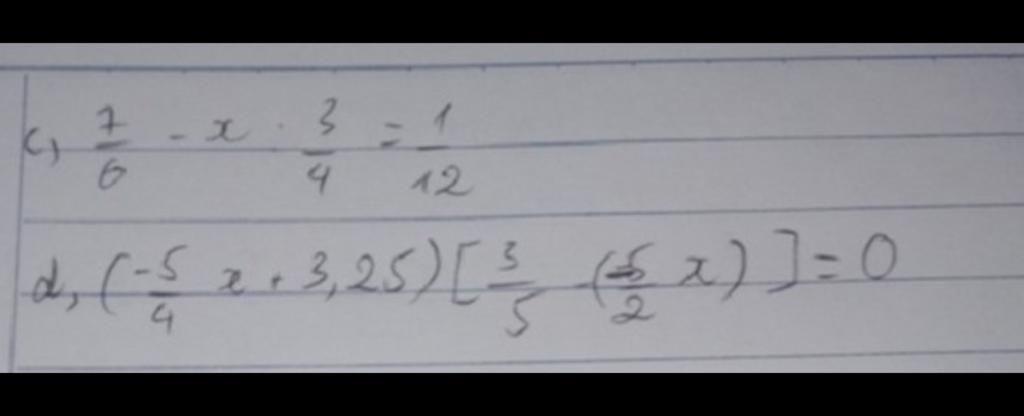 c, 7/6 - x . 3/4 = 1/12
d, (-5/4 x + 3,25) [3/5 - (-5/2 x)] = 0